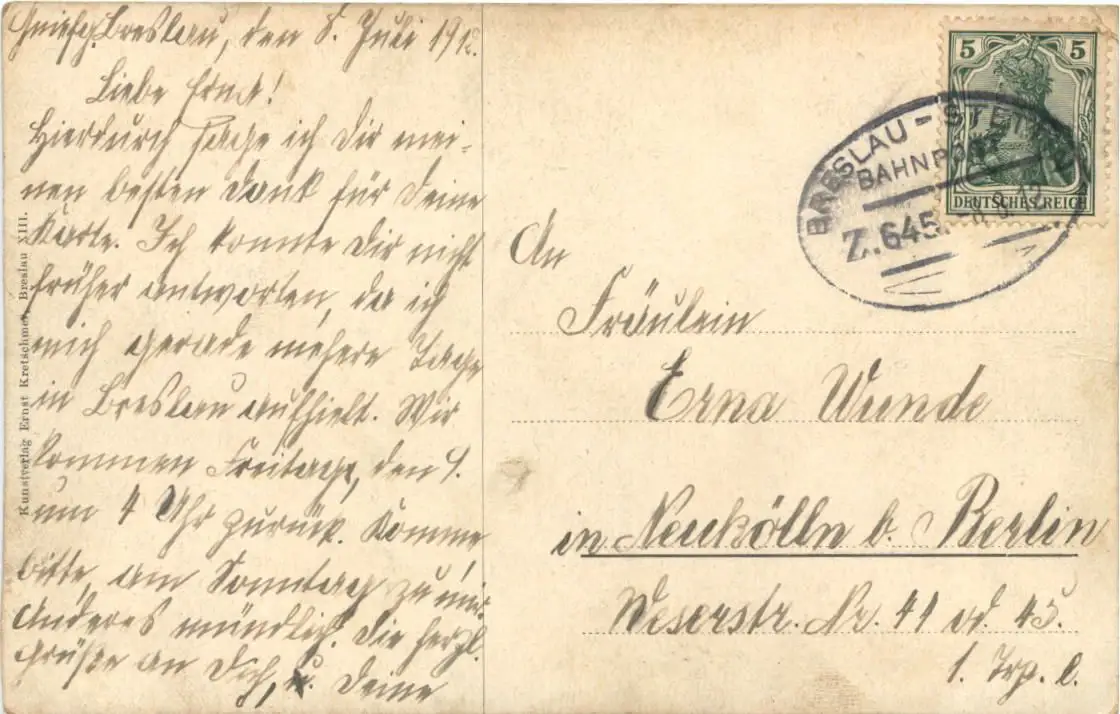 Breslau, den 8. Juli 1912.
Liebe Erna!
Hierdurch sage ich Dir mei-
nen besten Dank für Deine
Karte. Ich konnte Dir nicht
früher antworten, da ich
mich gerade mehere Tage
in Breslau aufhielt. Wir
kommen Freitag, den
um 4 Uhr zurück. Komme
bitte, am Sonntag zu mir.
Anderes mündlich. Die herzl.
Grüße an Dich, u. Deine
Kunstverlag Ernst Kretschmer, Breslau XIII.
5 5
DEUTSCHES REICH
BRESLAU - STETTIN
BAHNPOST
Z. 645. 12
An
Fräulein
Erna Wunde
in Neukölln b. Berlin
Weserstr. Nr. 41 od. 45.
1. Trp. l.